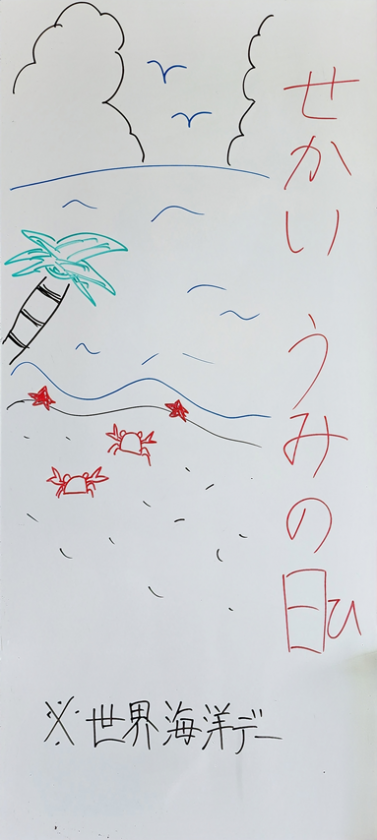 せかい うみの日
ひ
※世界海洋デー